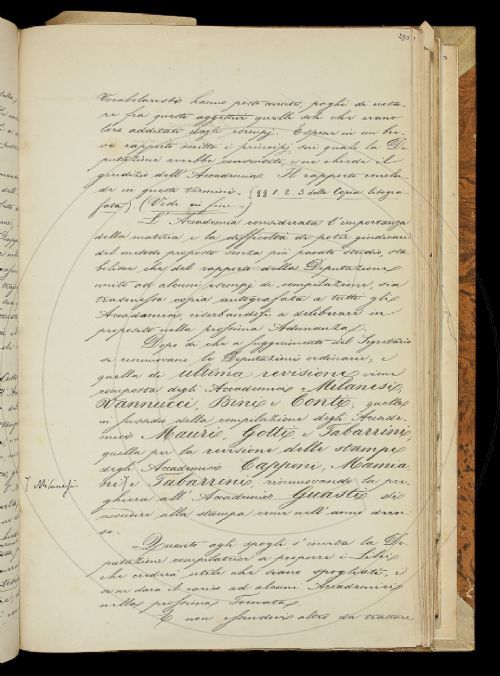 290
Vocabolaristi hanno posto mente, paghi di nota-
re fra questi aggettivi quelli soli che erano
loro additati dagli esempj. Espone in un bre-
ve rapporto scritto i principj sui quali la De-
putazione avrebbe, e ne chiede il
giudizio dell'Accademia. Il rapporto conclu-
de in questi termini. (§§ 1. 2. 3 della Copia litogra-
fata). (Vedi in fine)
L'Accademia considerata l'importanza
della materia e la difficoltà di poter giudicare
del metodo proposto senza più pacato studio, sta-
bilisce che del rapporto della Deputazione
unito ad alcuni esempj di compilazione, sia
trasmessa copia autografata a tutti gli
Accademici, riserbandosi a deliberare in
proposito nella prossima Adunanza.
Dopo di che a suggerimento del Segretario
si rinnovano le Deputazioni ordinarie, e
quella di ultima revisione viene
composta degli Accademici Milanesi,
Vannucci, Bini e Conti; quella
in sussidio della compilazione degli Accade-
mici Mauri, Gotti e Tabarrini;
quella per la revisione delle stampe
degli Accademici Capponi, Mamia-
ni e Tabarrini, rinnovando la pre-
ghiera all'Accademico Guasti di
accudire alla stampa come nell'anno decor-
so.
Milaneschi
Quanto agli spogli s'invita la De-
putazione compilatrice a proporre i Libri
che crederà utile che siano spogliati, e
se ne darà il carico ad alcuni Accademici
nella prossima Tornata.
E non essendovi altro da trattare